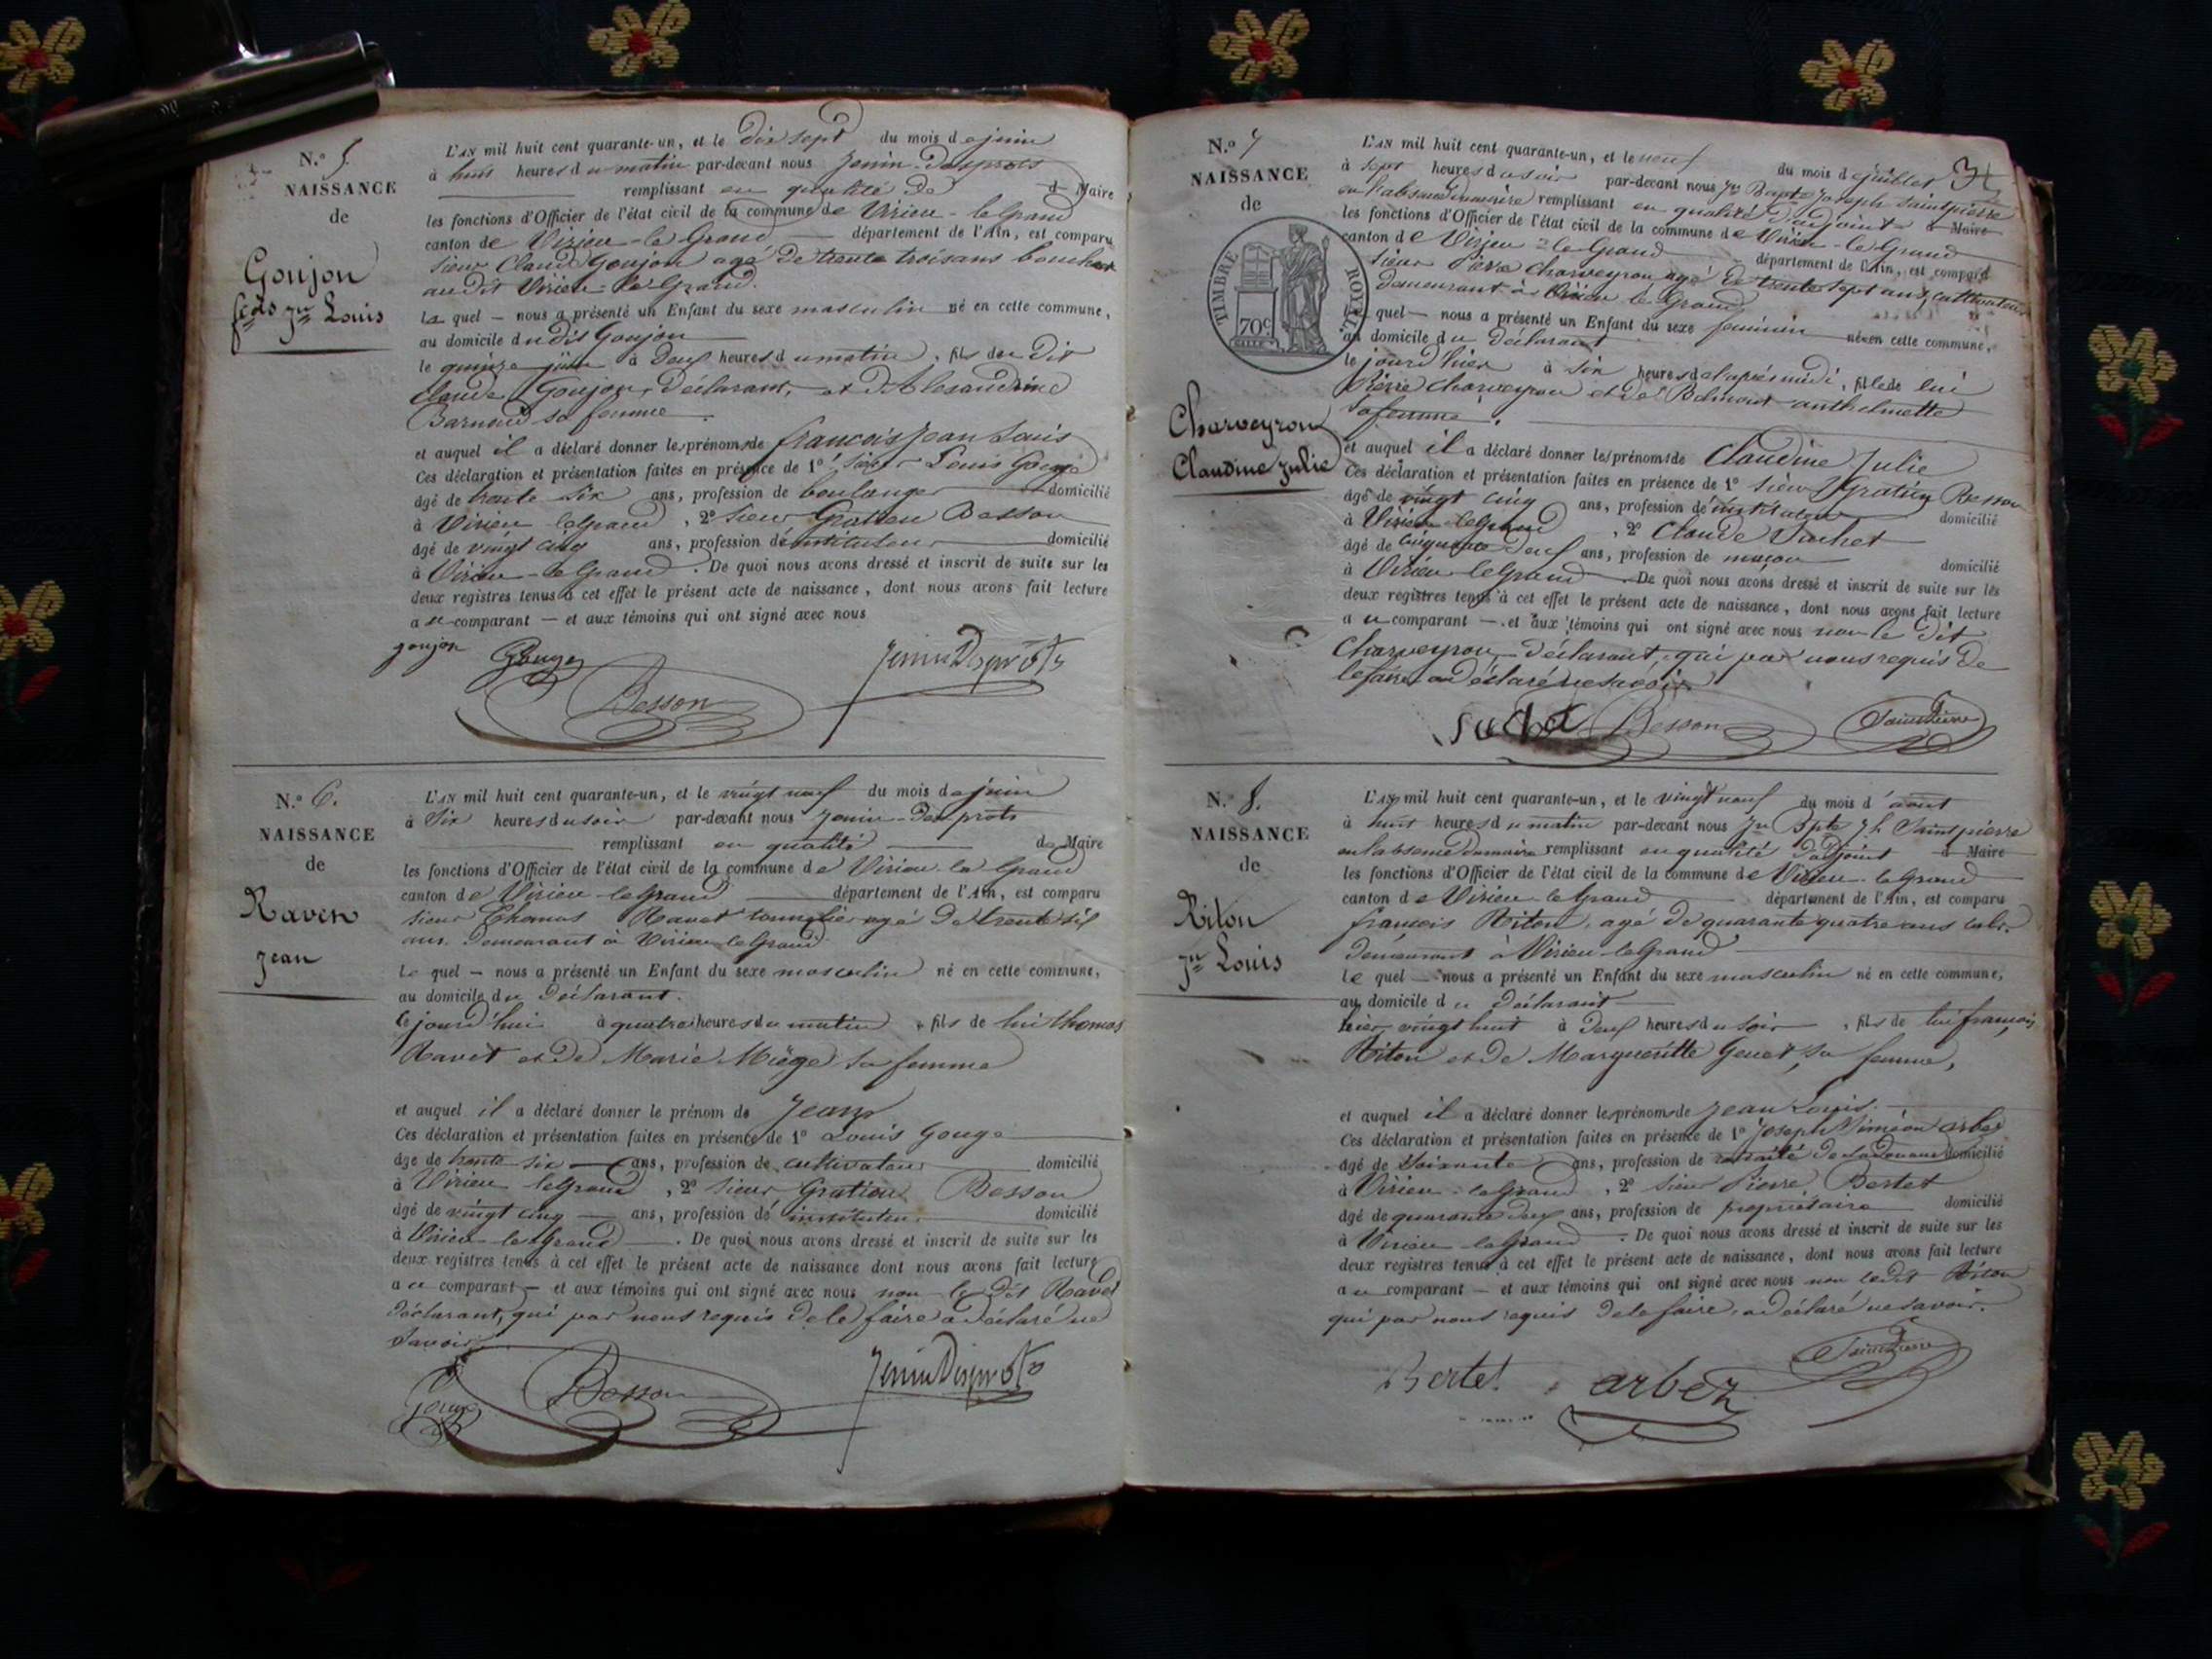 N.º 5.
NAISSANCE
de
Goujon
fçois Jn Louis
L'AN mil huit cent quarante-un, et le dix sept du mois de juin
à huit heures du matin par-devant nous Jenin-Desprots
remplissant en qualité de d Maire
les fonctions d'Officier de l'état civil de la commune de Virieu-le Grand
canton de Virieu-le Grand département de l'Ain, est comparu
sieur Claude Goujon agé de trente trois ans boucher
au dit Virieu-le Grand.
Le quel — nous a présenté un Enfant du sexe masculin né en cette commune,
au domicile du dit Goujon
le quinze juin à deux heures du matin, fils du dit
Claude Goujon, déclarant, et d'Alexandrine
Barnoud sa femme
et auquel il a déclaré donner les prénoms de francois Jean Louis
Ces déclaration et présentation faites en présence de 1º sieur Louis Gouge
âgé de trente six ans, profession de boulanger domicilié
à Virieu le grand, 2º sieur Gratien Besson
âgé de vingt cinq ans, profession de instituteur domicilié
à Virieu-le Grand. De quoi nous avons dressé et inscrit de suite sur les
deux registres tenus à cet effet le présent acte de naissance, dont nous avons fait lecture
a ce comparant — et aux témoins qui ont signé avec nous
goujon Gouge Besson Jenin Desprots
N.º 6.
NAISSANCE
de
Raven
Jean
L'AN mil huit cent quarante-un, et le vingt neuf du mois de juin
à six heures du soir par-devant nous Jenin-Desprots
remplissant en qualité de Maire
les fonctions d'Officier de l'état civil de la commune de Virieu-le Grand
canton de Virieu-le grand département de l'Ain, est comparu
sieur Thomas Ravet agé de trente six
ans demeurant à Virieu le Grand.
Le quel — nous a présenté un Enfant du sexe masculin né en cette commune,
au domicile du déclarant.
le jourd'hui à quatre heures du matin, fils de lui thomas
Ravet et de Marie Miège sa femme
et auquel il a déclaré donner le prénom de Jean
Ces déclaration et présentation faites en présence de 1º Louis Gouge
âgé de trente six — ans, profession de cultivateur domicilié
à Virieu le grand, 2º sieur Gratien Besson
âgé de vingt cinq — ans, profession de instituteur domicilié
à Virieu le grand. De quoi nous avons dressé et inscrit de suite sur les
deux registres tenus à cet effet le présent acte de naissance dont nous avons fait lecture
a ce comparant — et aux témoins qui ont signé avec nous non le dit Ravet
déclarant, qui par nous requis de le faire a déclaré ne
savoir.
Gouge Besson Jenin Desprots
N.º 7
NAISSANCE
de
TIMBRE ROYAL
70 c
Charveyron
Claudine Julie
L'AN mil huit cent quarante-un, et le neuf du mois de juillet
à sept heures du soir par-devant nous Jn Bapte Joseph Saintpierre
en l'absence du maire remplissant en qualité d'adjoint d Maire
les fonctions d'Officier de l'état civil de la commune de Virieu-le Grand
canton de Virieu-le Grand département de l'Ain, est comparu
sieur Pierre Charveyron agé de trente sept ans, cultivateur
demeurant à Virieu le Grand
Le quel — nous a présenté un Enfant du sexe feminin née en cette commune,
au domicile du déclarant
le jourd'hier à six heures de l'après midi, fille de lui
Pierre Charveyron et de Belmont anthelmette
sa femme.
et auquel il a déclaré donner les prénoms de Claudine Julie
Ces déclaration et présentation faites en présence de 1º sieur Gratien Besson
âgé de vingt cinq ans, profession de instituteur domicilié
à Virieu-le Grand, 2º Claude Suchet
âgé de cinquante deux ans, profession de maçon domicilié
à Virieu le Grand. De quoi nous avons dressé et inscrit de suite sur les
deux registres tenus à cet effet le présent acte de naissance, dont nous avons fait lecture
a ce comparant — et aux témoins qui ont signé avec nous non le dit
Charveyron, déclarant, qui par nous requis de
le faire a déclaré ne savoir
Suchet Besson Saintpierre
N.º 8.
NAISSANCE
de
Riton
Jn Louis
L'AN mil huit cent quarante-un, et le vingt neuf du mois d'aout
à huit heures du matin par-devant nous Jn Bpte Jh Saintpierre
en l'absence du maire remplissant en qualité d'adjoint d Maire
les fonctions d'Officier de l'état civil de la commune de Virieu-le Grand
canton de Virieu le Grand département de l'Ain, est comparu
françois Riton, agé de quarante quatre ans cultr.
demeurant à Virieu-le Grand
Le quel — nous a présenté un Enfant du sexe masculin né en cette commune,
au domicile du déclarant
hier vingt huit à deux heures du soir, fils de lui françois
Riton et de Margueritte Genet, sa femme,
et auquel il a déclaré donner les prénoms de Jean Louis.
Ces déclaration et présentation faites en présence de 1º Joseph Siméon arbez
âgé de soixante ans, profession de retraité de la Douane domicilié
à Virieu-le Grand, 2º sieur Pierre Bertet
âgé de quarante deux ans, profession de propriétaire domicilié
à Virieu le Grand. De quoi nous avons dressé et inscrit de suite sur les
deux registres tenus à cet effet le présent acte de naissance, dont nous avons fait lecture
a ce comparant — et aux témoins qui ont signé avec nous non le dit Riton
qui par nous requis de le faire, a déclaré ne savoir.
Bertet arbez Saintpierre